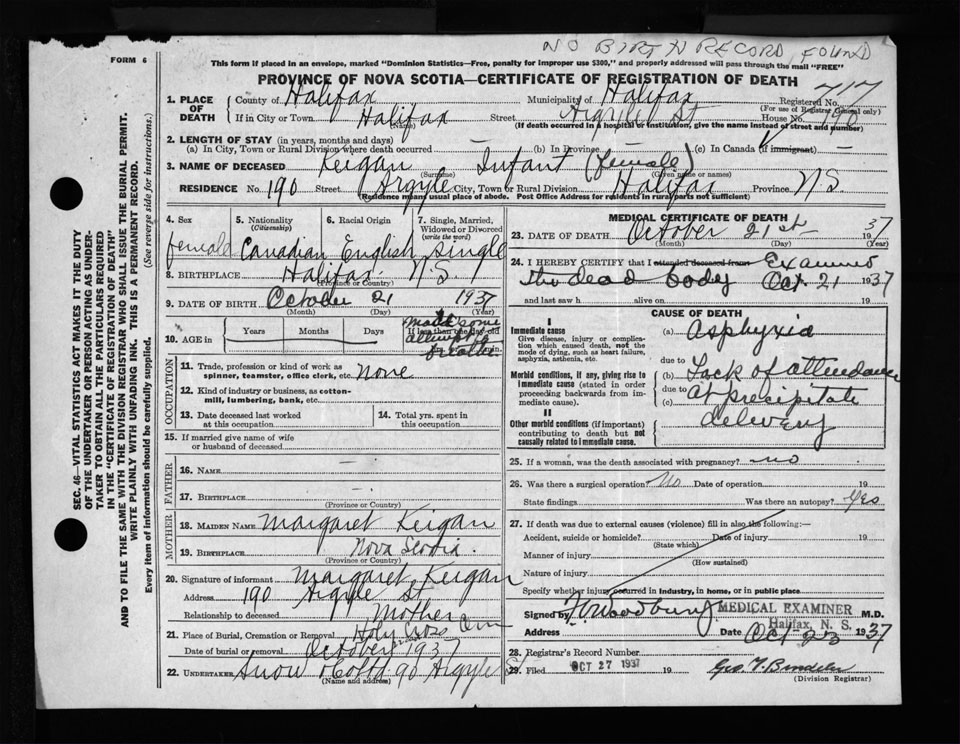 NO BIRTH RECORD FOUND
FORM 6
This form if placed in an envelope, marked "Dominion Statistics—Free, penalty for improper use $300," and properly addressed will pass through the mail "FREE"
PROVINCE OF NOVA SCOTIA—CERTIFICATE OF REGISTRATION OF DEATH
717
1. PLACE OF DEATH
County of Halifax Municipality of Halifax Registered No.
(For use of Registrar General only)
If in City or Town Halifax Street Argyle St House No. 190
(Name) (If death occurred in a hospital or institution, give the name instead of street and number)
2. LENGTH OF STAY (in years, months and days)
(a) In City, Town or Rural Division where death occurred — (b) In Province (c) In Canada (if immigrant) —
3. NAME OF DECEASED Keigan Infant (female)
(Surname) (Given name or names)
RESIDENCE No. 190 Street Argyle City, Town or Rural Division Halifax Province N S
(Residence means usual place of abode. Post Office Address for residents in rural parts not sufficient)
4. Sex 5. Nationality (Citizenship) 6. Racial Origin 7. Single, Married, Widowed or Divorced (write the word)
female Canadian English single
8. BIRTHPLACE Halifax N.S
(Province or Country)
9. DATE OF BIRTH October 21 1937
(Month) (Day) (Year)
10. AGE in Years Months Days If less than one day old
made some
11. Trade, profession or kind of work as spinner, teamster, office clerk, etc. None
OCCUPATION
12. Kind of industry or business, as cotton-mill, lumbering, bank, etc.
13. Date deceased last worked at this occupation
14. Total yrs. spent in this occupation
15. If married give name of wife or husband of deceased
FATHER
16. NAME —
17. BIRTHPLACE —
(Province or Country)
MOTHER
18. MAIDEN NAME Margaret Keigan
19. BIRTHPLACE Nova Scotia.
(Province or Country)
20. Signature of informant Margaret Keigan
Address 190 Argyle St
Relationship to deceased Mother
21. Place of Burial, Cremation or Removal Holy Cross Cem
Date of burial or removal October 1937
22. UNDERTAKER Snow & Co Ltd 90 Argyle St
(Name and address)
MEDICAL CERTIFICATE OF DEATH
23. DATE OF DEATH October 21st 1937
(Month) (Day) (Year)
24. I HEREBY CERTIFY that I attended deceased from Examined
the dead body Oct. 21 1937
and last saw h alive on 19
CAUSE OF DEATH
I
Immediate cause
Give disease, injury or complication which caused death, not the mode of dying, such as heart failure, asphyxia, asthenia, etc.
(a) Asphyxia
due to
Morbid conditions, if any, giving rise to immediate cause (stated in order proceeding backwards from immediate cause).
(b) Lack of attendance
due to
(c) at precipitate
delivery
II
Other morbid conditions (if important) contributing to death but not causally related to immediate cause.
25. If a woman, was the death associated with pregnancy? no
26. Was there a surgical operation? No Date of operation 19
State findings Was there an autopsy? Yes
27. If death was due to external causes (violence) fill in also the following:—
Accident, suicide or homicide? Date of injury 19
(State which)
Manner of injury
(How sustained)
Nature of injury
Specify whether injury occurred in industry, in home, or in public place
Signed by Woodbury MEDICAL EXAMINER M.D.
Halifax, N. S.
Address Date Oct-23 1937
28. Registrar's Record Number
29. Filed OCT 27 1937 19
(Division Registrar)
SEC. 46—VITAL STATISTICS ACT MAKES IT THE DUTY
OF THE UNDERTAKER OR PERSON ACTING AS UNDER-
TAKER TO OBTAIN ALL THE PARTICULARS REQUIRED
IN THE "CERTIFICATE OF REGISTRATION OF DEATH"
AND TO FILE THE SAME WITH THE DIVISION REGISTRAR WHO SHALL ISSUE THE BURIAL PERMIT.
WRITE PLAINLY WITH UNFADING INK. THIS IS A PERMANENT RECORD.
Every item of information should be carefully supplied. (See reverse side for instructions.)